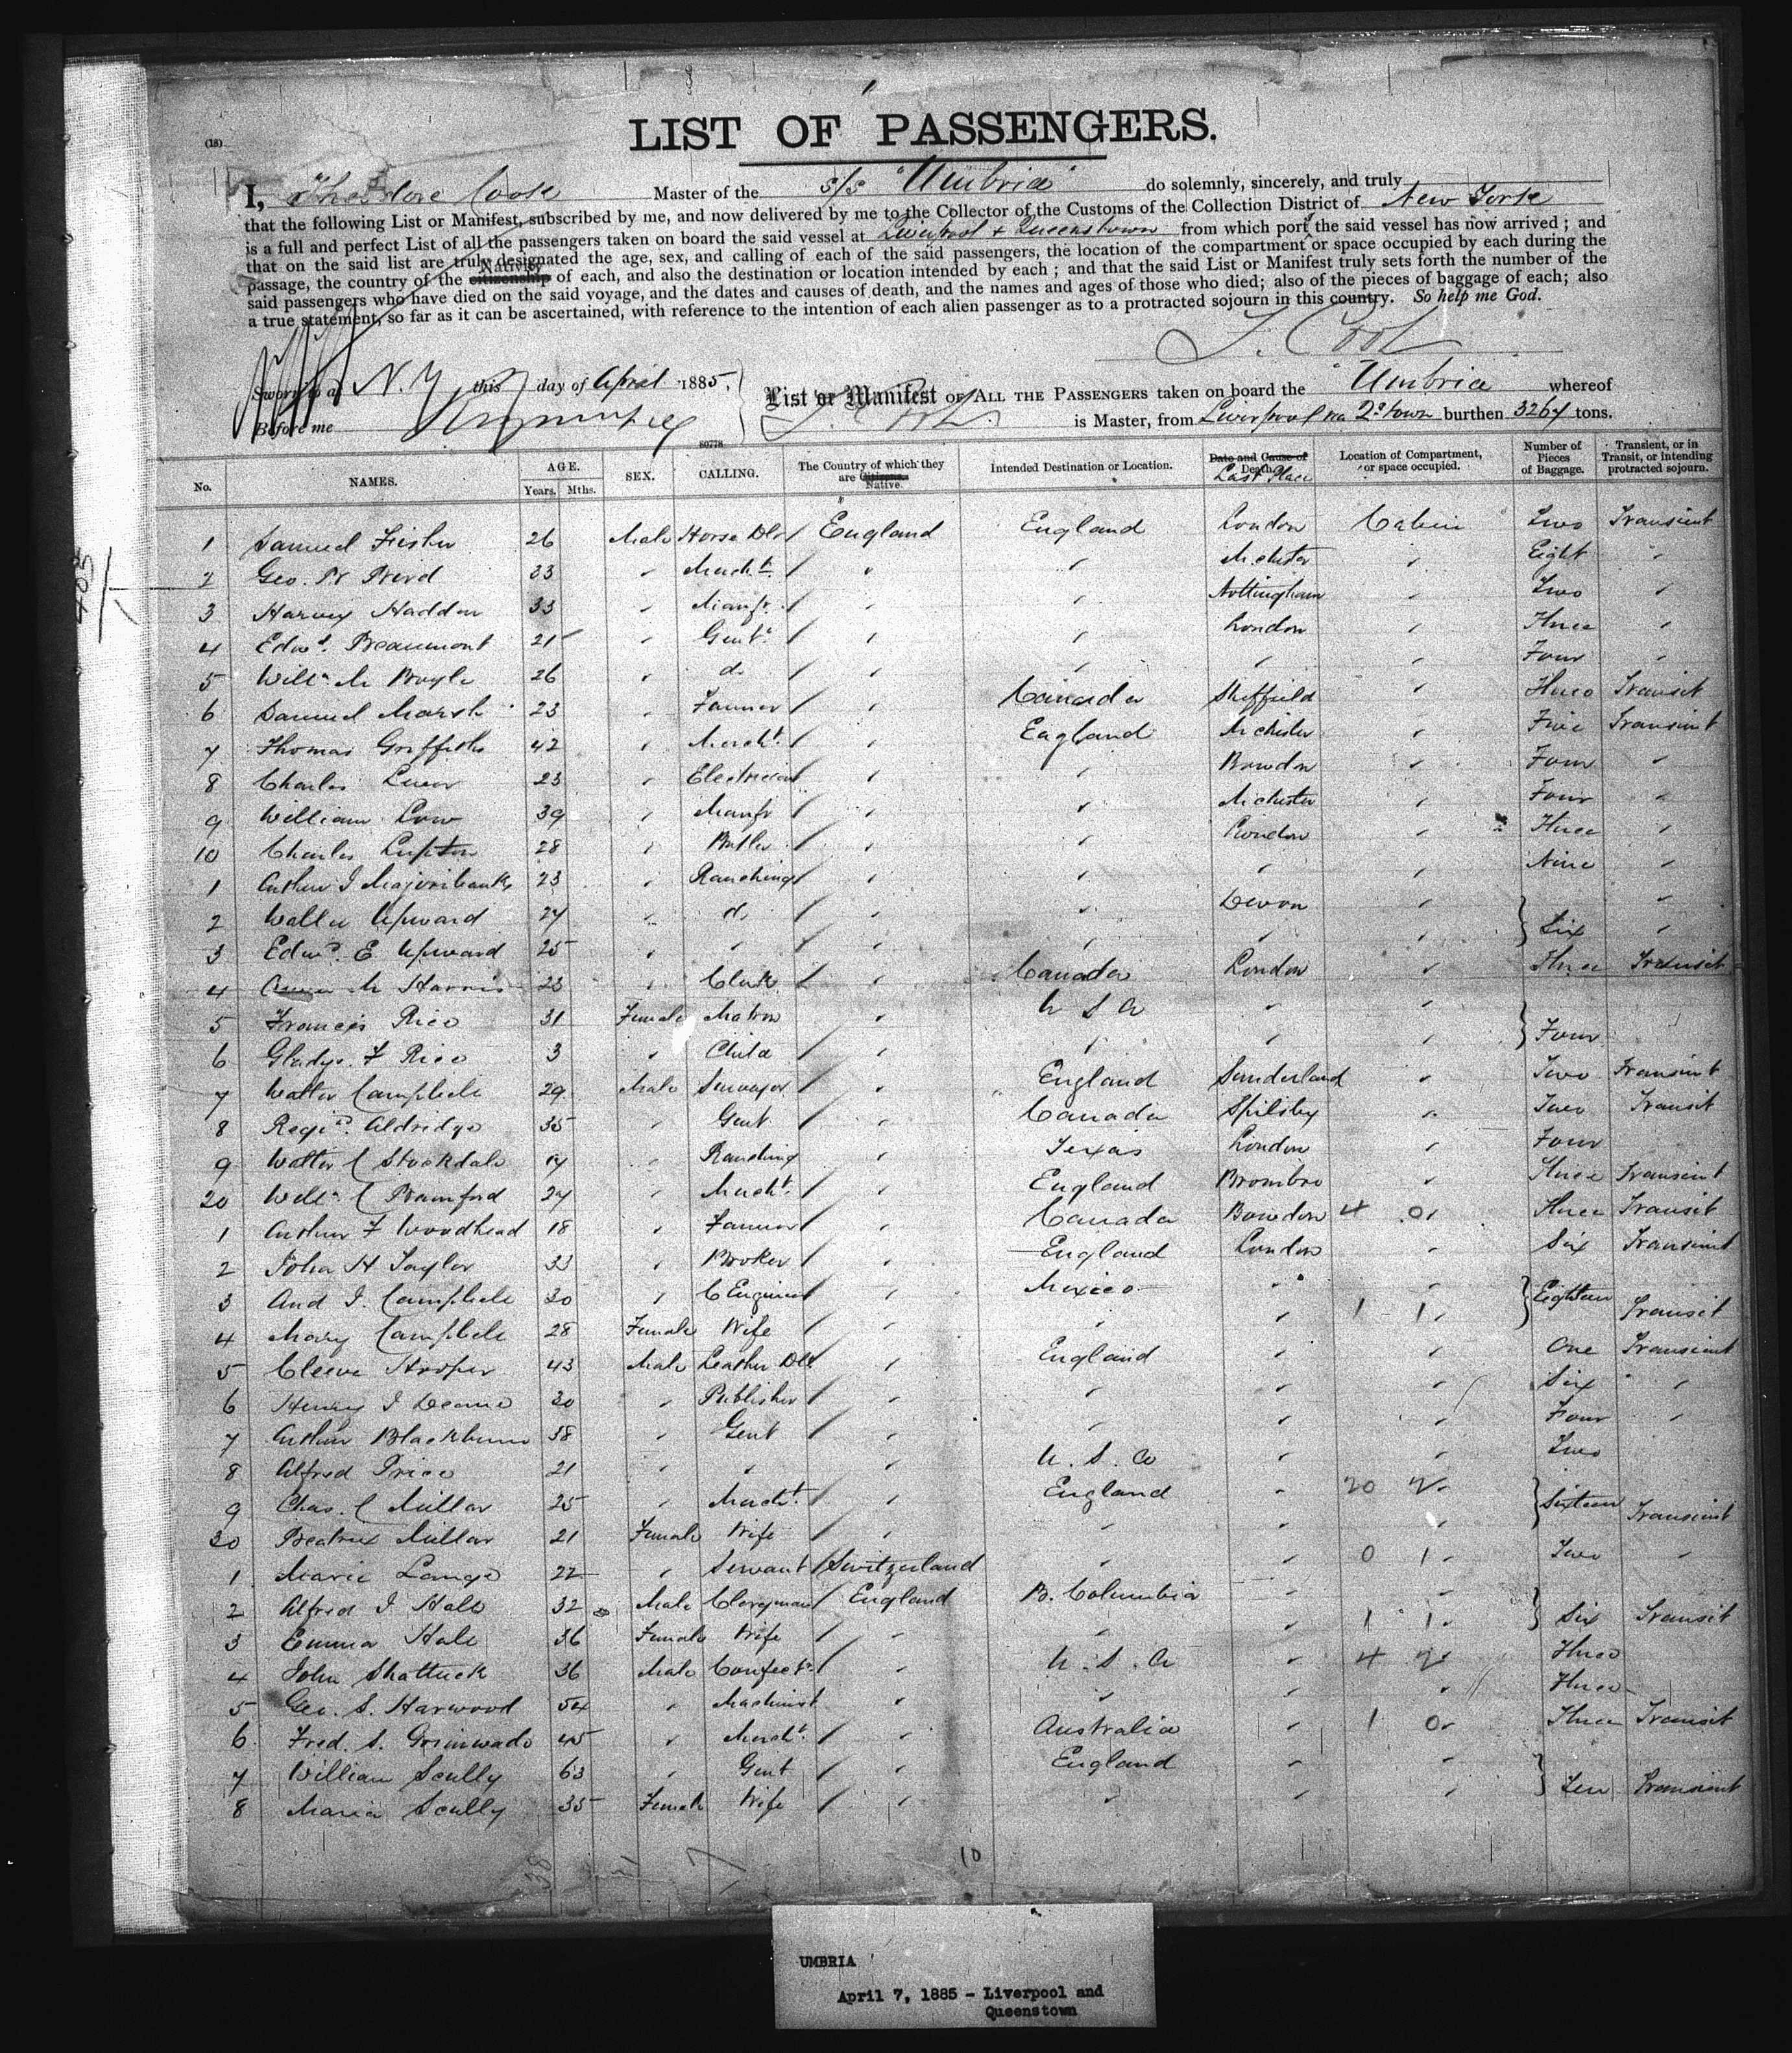 (18)
LIST OF PASSENGERS.
I, Theodore Cook Master of the s/s "Umbria" do solemnly, sincerely, and truly
that the following List or Manifest, subscribed by me, and now delivered by me to the Collector of the Customs of the Collection District of New York
is a full and perfect List of all the passengers taken on board the said vessel at Liverpool & Queenstown from which port the said vessel has now arrived; and
that on the said list are truly designated the age, sex, and calling of each of the said passengers, the location of the compartment or space occupied by each during the
passage, the country of the citizenship Nativity of each, and also the destination or location intended by each; and that the said List or Manifest truly sets forth the number of the
said passengers who have died on the said voyage, and the dates and causes of death, and the names and ages of those who died; also of the pieces of baggage of each; also
a true statement, so far as it can be ascertained, with reference to the intention of each alien passenger as to a protracted sojourn in this country. So help me God.
T. Cook
Sworn to at N.Y this 7 day of April 1885,
Before me
List or Manifest OF ALL THE PASSENGERS taken on board the Umbria whereof
T. Cook is Master, from Liverpool via Q'town burthen 3264 tons.
80778
No. NAMES. AGE. Years. Mths. SEX. CALLING. The Country of which they are Citizens. Native. Intended Destination or Location. Date and Cause of Death. Last Place Location of Compartment, or space occupied. Number of Pieces of Baggage. Transient, or in Transit, or intending protracted sojourn.
1 Samuel Fisher 26 Male Horse Dlr England England London Cabin Two Transient
2 Geo. W 33 " Mercht " " Mchester " Eight "
3 Harvey Haddon 33 " Manfr. " " Nottingham " Two "
4 Edwd. Beaumont 21 " Gent. " " London " Three "
5 Willm. M Boyle 26 " do " " " " Four "
6 Samuel Marsh 23 " Farmer " Canada Sheffield " Three Transit
7 Thomas Griffiths 42 " Mercht. " England Mchester " Five Transient
8 Charles 23 " Electrician " " Bowdon " Four "
9 William Low 39 " Manfr " " Mchester " Four "
10 Charles Lupton 28 " Butler " " London " Three "
1 Arthur J Majoribanks 23 " Ranching " " " " Nine "
2 Walter Upward 27 " do " " Devon " "
3 Edwd. E. Upward 25 " " " " " " } Six "
4 M Harris 23 " Clerk " Canada London " Three Transit
5 Frances Rice 31 Female Matron " U S A " "
6 Gladys. F Rice 3 " Child " " " " } Four
7 Walter Campbell 29 Male Surveyor " England Sunderland " Two Transient
8 Regid. Aldridge 35 " Gent " Canada Spilsby " Two Transit
9 Walter C Stockdale 19 " Ranching " Texas London " Four
20 Willm. C Bamford 24 " Mercht. " England Brombro " Three Transient
1 Arthur F Woodhead 18 " Farmer " Canada Bowdon 4 0 " Three Transit
2 John H Taylor 33 " Broker " England London " Six Transient
3 And J. Campbell 30 " C Engineer " Mexico " " } Eighteen
4 Mary Campbell 28 Female Wife " " " 1 1 " Transit
5 Cleeve Hooper 43 Male Leather Dlr " England " " One Transient
6 Henry J Deane 30 " Publisher " " " " Six "
7 Arthur Blackburn 38 " Gent " " " " Four "
8 Alfred Price 21 " " " U. S. A " " Two
9 Chas. C Millar 25 " Mercht. " England " 20 2 " } Sixteen
30 Beatrix Millar 21 Female Wife " " " " Transient
1 Marie Lange 22 " Servant Switzerland " " 0 1 " Two "
2 Alfred J Hall 32 Male Clergyman England B. Columbia " "
3 Emma Hall 36 Female Wife " " " 1 1 " } Six Transit
4 John Shattuck 36 Male Confectr. " U. S. A " 4 2 " Three
5 Geo. S. Harwood 54 " Machinist " " " " Three
6 Fred. S. Grimwade 45 " Mercht. " Australia " 1 0 " Three Transit
7 William Scully 63 " Gent " England " "
8 Maria Scully 35 Female Wife " " " " } Ten Transient
10
UMBRIA
April 7, 1885 - Liverpool and
Queenstown